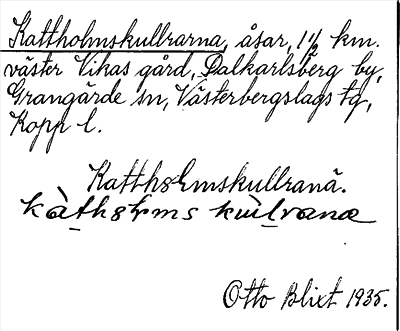 Kattholmskullrarna, åsar, 1½ km.
väster Vikas gård, Dalkarlsberg by,
Grangärde sn, Västerbergslags tg,
Kopp l.
Kattholmskullranä.
Otto Blixt 1935.